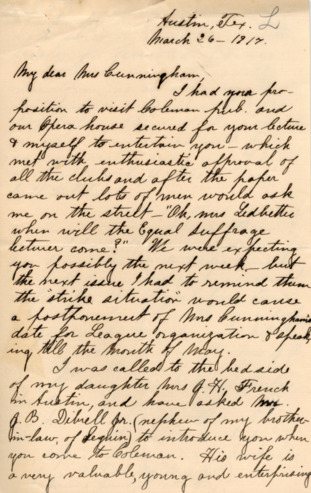 Austin, Tex. L
March 26 - 1917.
My dear Mrs Cunningham,
I had your pro-
position to visit Coleman pub. and
our Opera house secured for your lecture
& myself to entertain you - which
met with enthusiastic approval of
all the clubs and after the paper
came out lots of men would ask
me on the street - Oh, Mrs Ledbetter
when will the Equal Suffrage
lecturer come?" We were expecting
you possibly the next week - but
the next issue I had to remind them
the strike situation would cause
a postponement of Mrs Cunningham's
date for League organization & speak-
ing till the month of May.
I was called to the bedside
of my daughter Mrs J.H. French
in Austin, and have asked Mr.
J.B. Dibrell Jr. (nephew of my brother-
in-law, of Seguin) to introduce you when
you come to Coleman. His wife is
a very valuable, young and enterprising